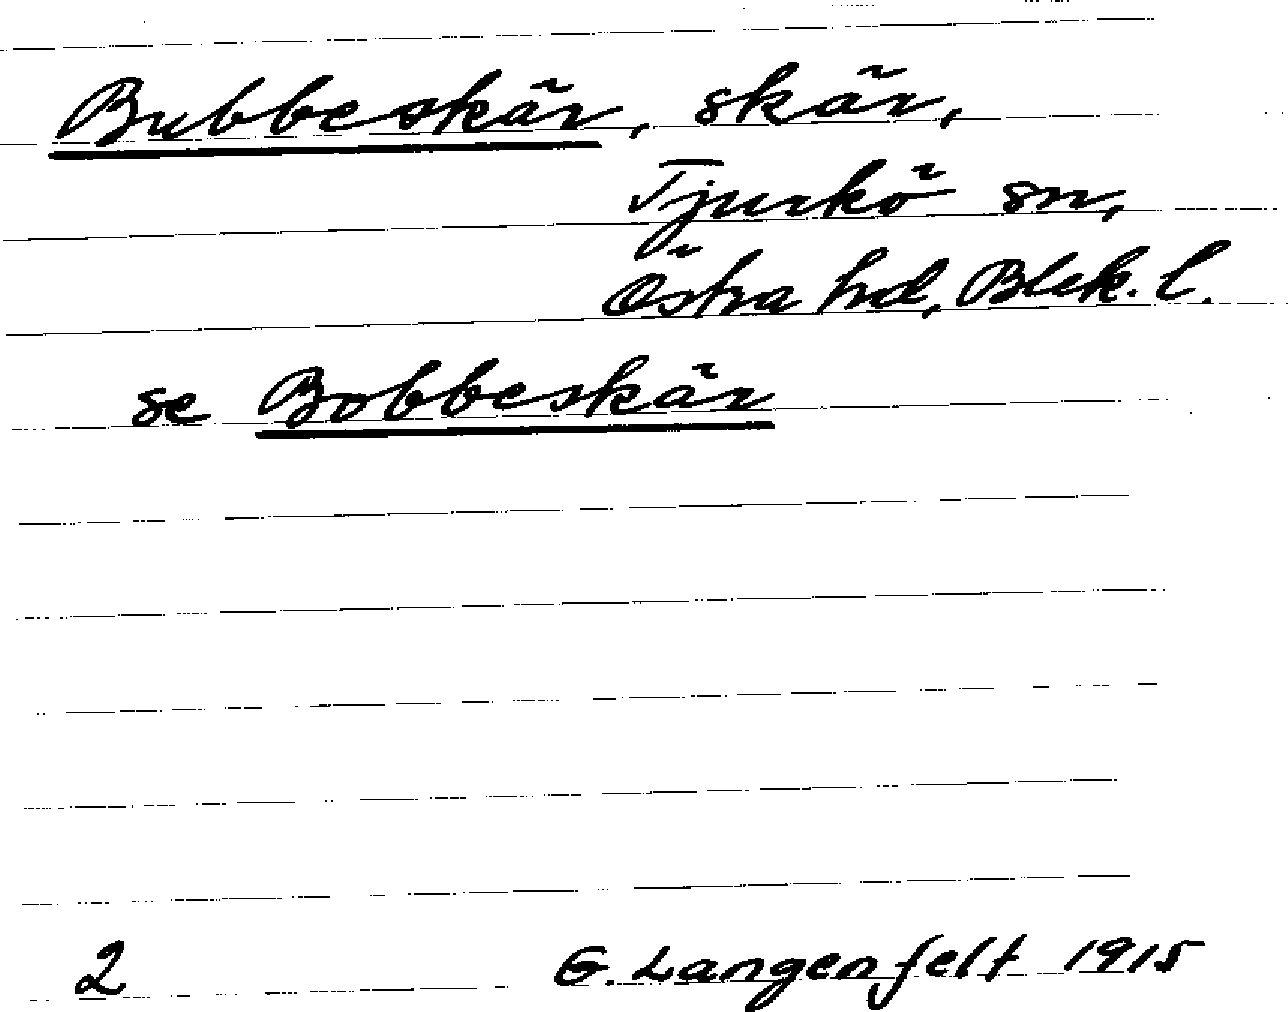 Bubbeskär, skär,
Tjurkö sn,
Östra hd, Blek. l.
se Bobbeskär
2 G. Langenfelt 1915